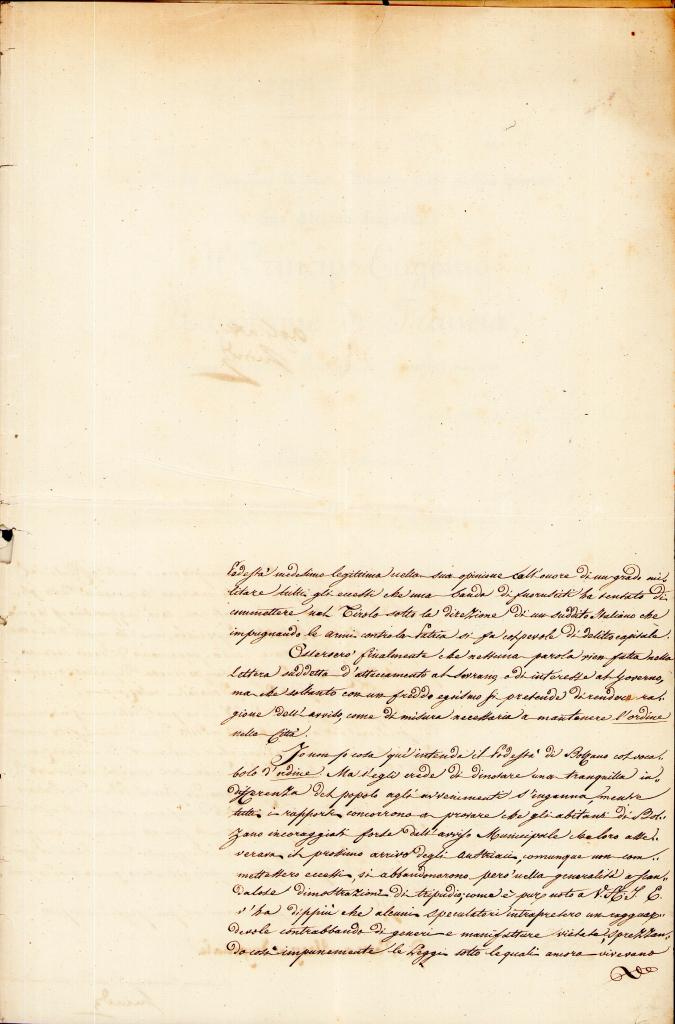 Podestà medesimo legittima nella sua opinione coll'onore di un grado mi=
litare tutti gli eccessi che una banda di fuorusciti ha tentato di
commettere nel Tirolo sotto la direzione di un suddito Italiano che
impugnando le armi contro la Patria si fa colpevole di delitto capitale.
Osserverò finalmente che nessuna parola vien fatta nella
lettera suddetta d'attaccamento al Sovrano, o di interesse al Governo,
ma che soltanto con un freddo egoismo si pretende di rendere ra=
gione dell'avviso, come di misura necessaria a mantenere l'ordine
nella Città.
Io non so cosa qui intenda il Podestà di Bolzano col voca=
bolo d'ordine. Ma s'egli crede di dinotare una tranquilla in=
differenza del popolo agli avvenimenti s'inganna, mentre
tutti i rapporti concorrono a provare che gli abitanti di Bol=
zano incoraggiati forse dell'avviso Municipale che loro asse=
verava il prossimo arrivo degli Austriaci, comunque non com=
mettessero eccessi, si abbandonarono però nella generalità a scan=
dalose dimostrazioni di tripudio, come è pur noto a V. A. I. E
v'ha dippiù che alcuni speculatori intrapresero un ragguar=
devole contrabbando di generi e manifatture vietate, sprezzan=
do così impunemente le Leggi sotto le quali ancora vivevano